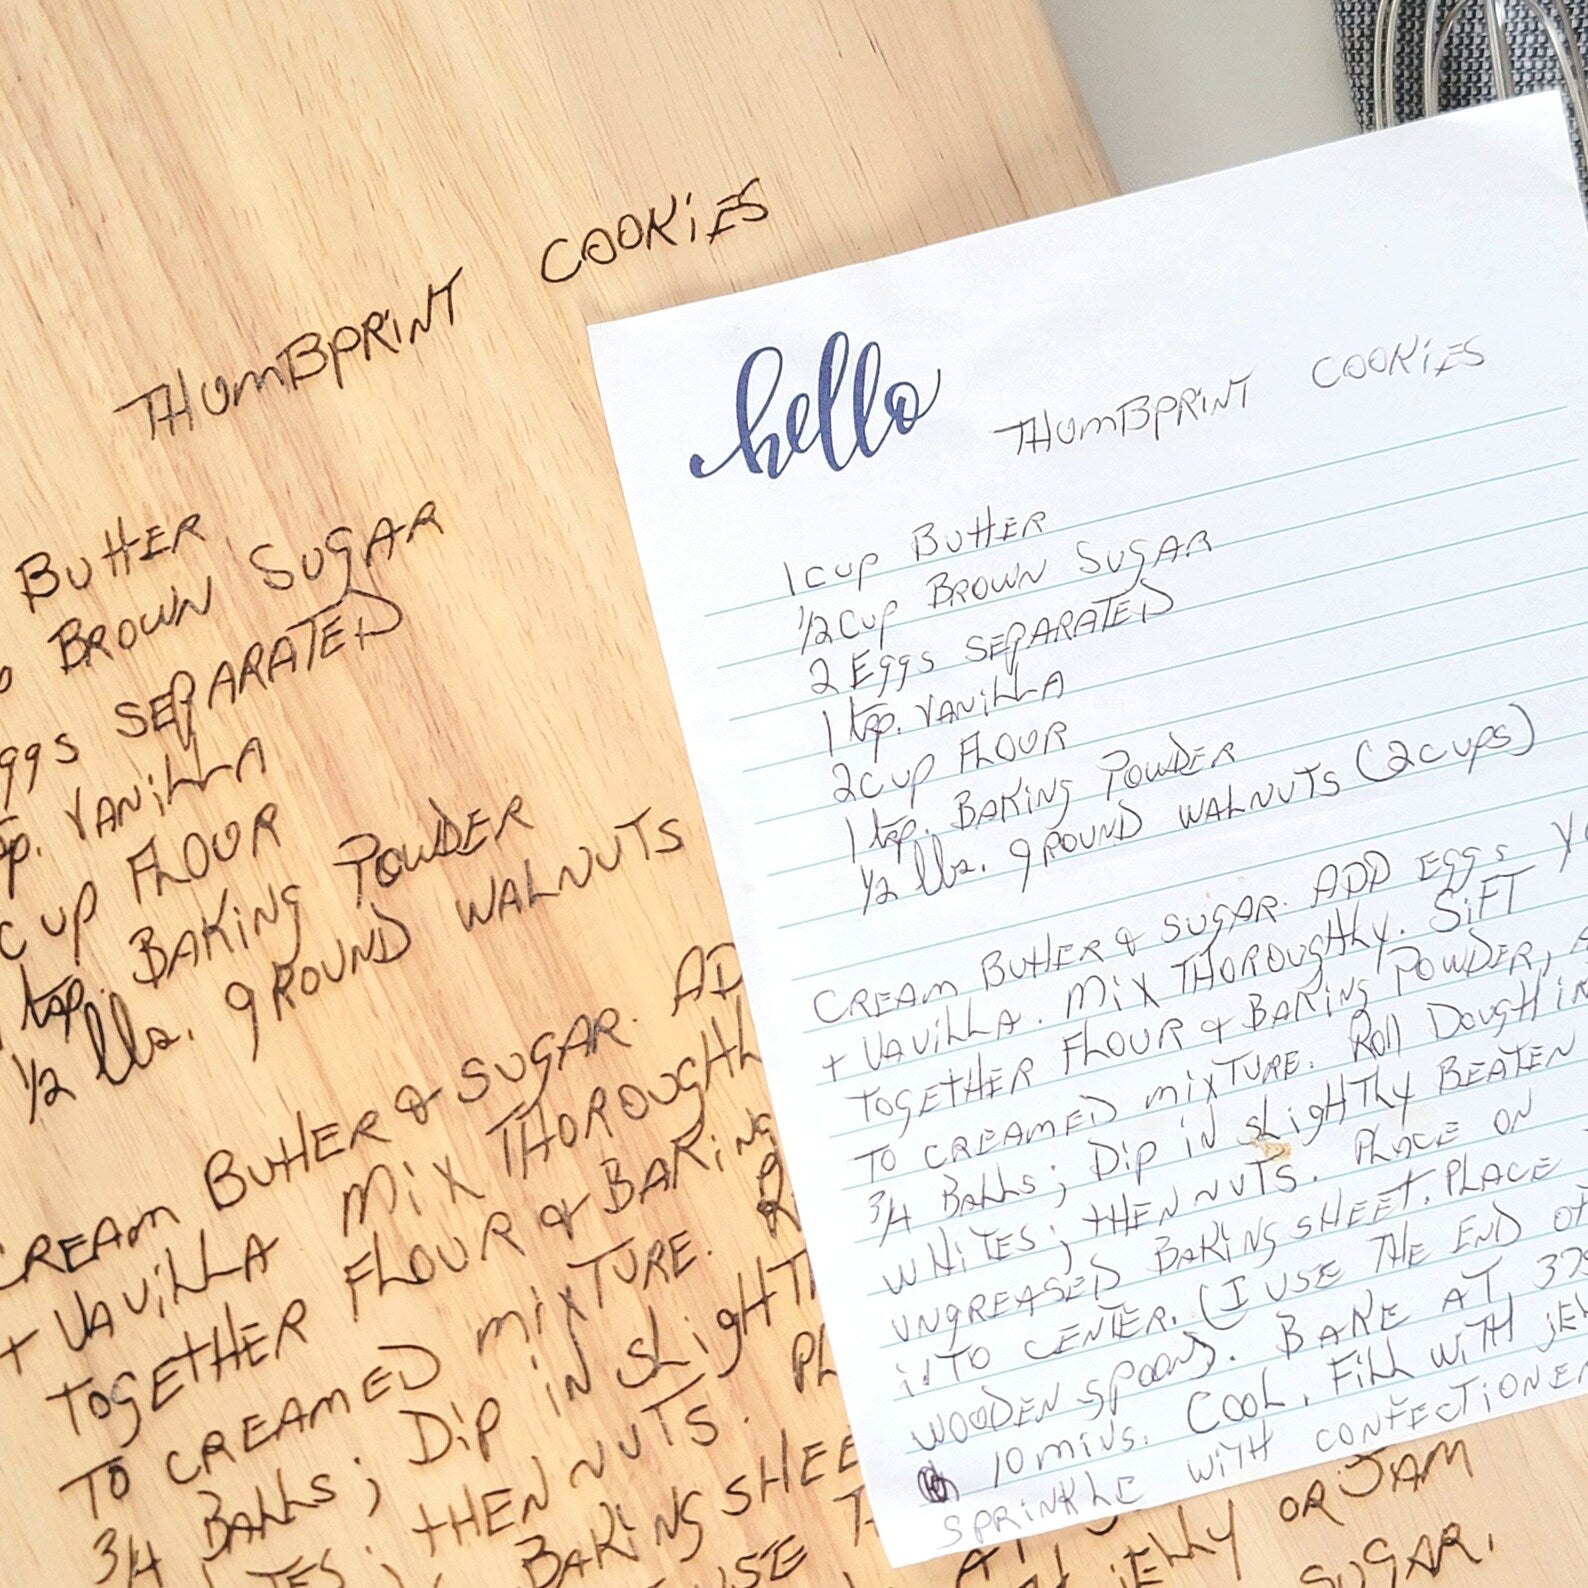 THUMBPRINT COOKIES
BUTTER
BROWN SUGAR
ggs SEPARATED
p. VANILLA
CUP FLOUR
tsp. BAKING POWDER
1/2 lbs. GROUND WALNUTS
CREAM BUTTER & SUGAR. AD
+ VAVILLA MIX THOROUGHL
TOGETHER FLOUR & BAKING
TO CREAMED MIXTURE. R
3/4 BALLS; DIP IN SLIGHT
TES; THEN NUTS. PL
BAKING SHEE
USE T
JELLY OR JAM
SUGAR.
hello
THUMBPRINT COOKIES
1 CUP BUTTER
1/2 CUP BROWN SUGAR
2 Eggs SEPARATED
1 tsp. VANILLA
2 CUP FLOUR
1 tsp. BAKING POWDER
1/2 lbs. GROUND WALNUTS (2 CUPS)
CREAM BUTTER & SUGAR. ADD EggS Y
+ VAVILLA. MIX THOROUGHLY. SIFT
TOGETHER FLOUR & BAKING POWDER, A
TO CREAMED MIXTURE. Roll DOUGH IN
3/4 BALLS; DIP IN SLIGHTLY BEATEN
WHITES; THEN NUTS. PLACE ON
UNGREASED BAKING SHEET. PLACE
INTO CENTER. (I USE THE END OF
WOODEN SPOON). BAKE AT 375
10 MINS. COOL, FILL WITH JE
SPRINKLE WITH CONFECTIONER